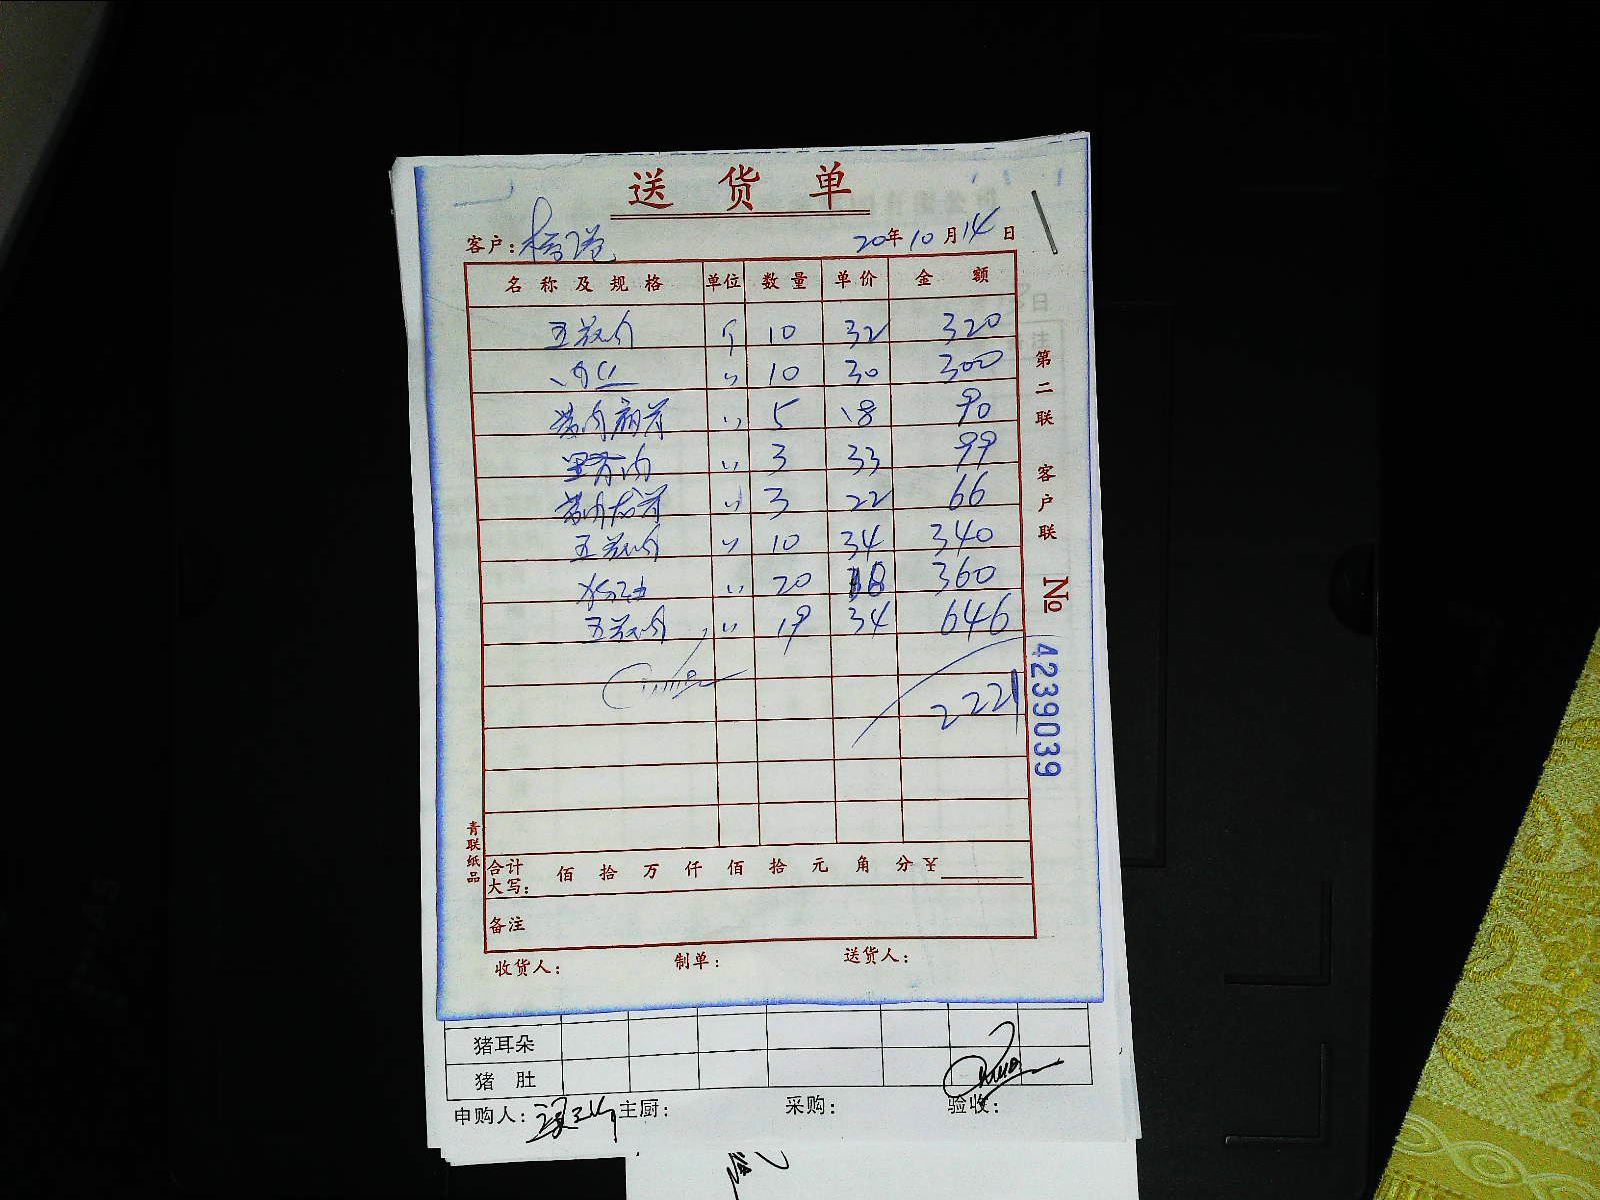 送货单
客户: 20年10月14日
名称及规格 单位 数量 单价 金额
五花肉 斤 10 32 320
肉丝 〃 10 30 300
带肉扇骨 〃 5 18 90
里脊肉 〃 3 33 99
带肉龙骨 〃 3 22 66
五花肉 〃 10 34 340
〃 20 18 360
五花肉 〃 19 34 646
2221
第二联 客户联
№ 4239039
青联纸品
合计大写: 佰 拾 万 仟 佰 拾 元 角 分 ¥
备注
收货人: 制单: 送货人:
猪耳朵
猪肚
申购人: 主厨: 采购: 验收: